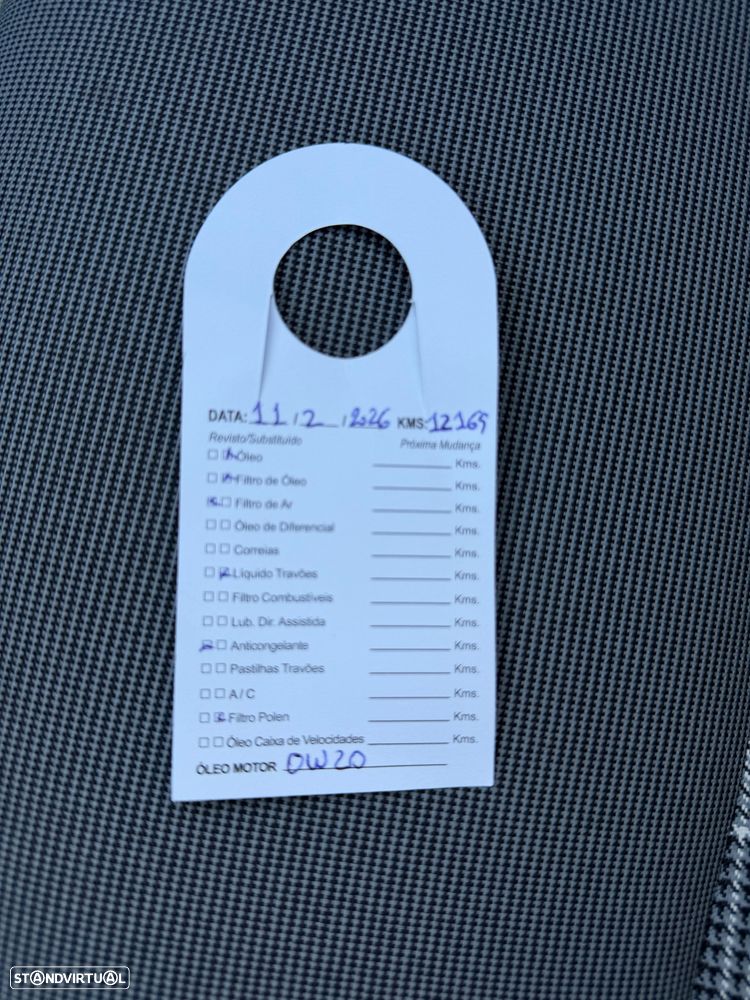 DATA: 11 / 2 / 2026 KMS: 12169
Revisto/Substituído Próxima Mudança
Óleo Kms.
Filtro de Óleo Kms.
Filtro de Ar Kms.
Óleo de Diferencial Kms.
Correias Kms.
Líquido Travões Kms.
Filtro Combustíveis Kms.
Lub. Dir. Assistida Kms.
Anticongelante Kms.
Pastilhas Travões Kms.
A / C Kms.
Filtro Polen Kms.
Óleo Caixa de Velocidades Kms.
ÓLEO MOTOR 0W20
STANDVIRTUAL